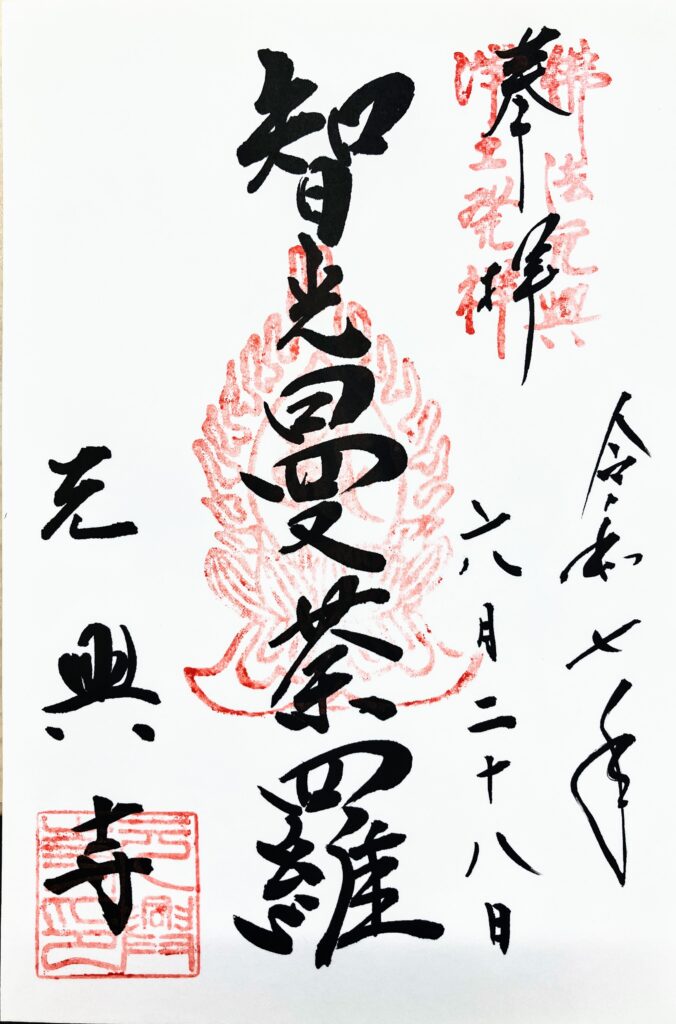 奉拝
佛法元興
浄土発祥
令和七年
六月二十八日
智光曼荼羅
元興寺